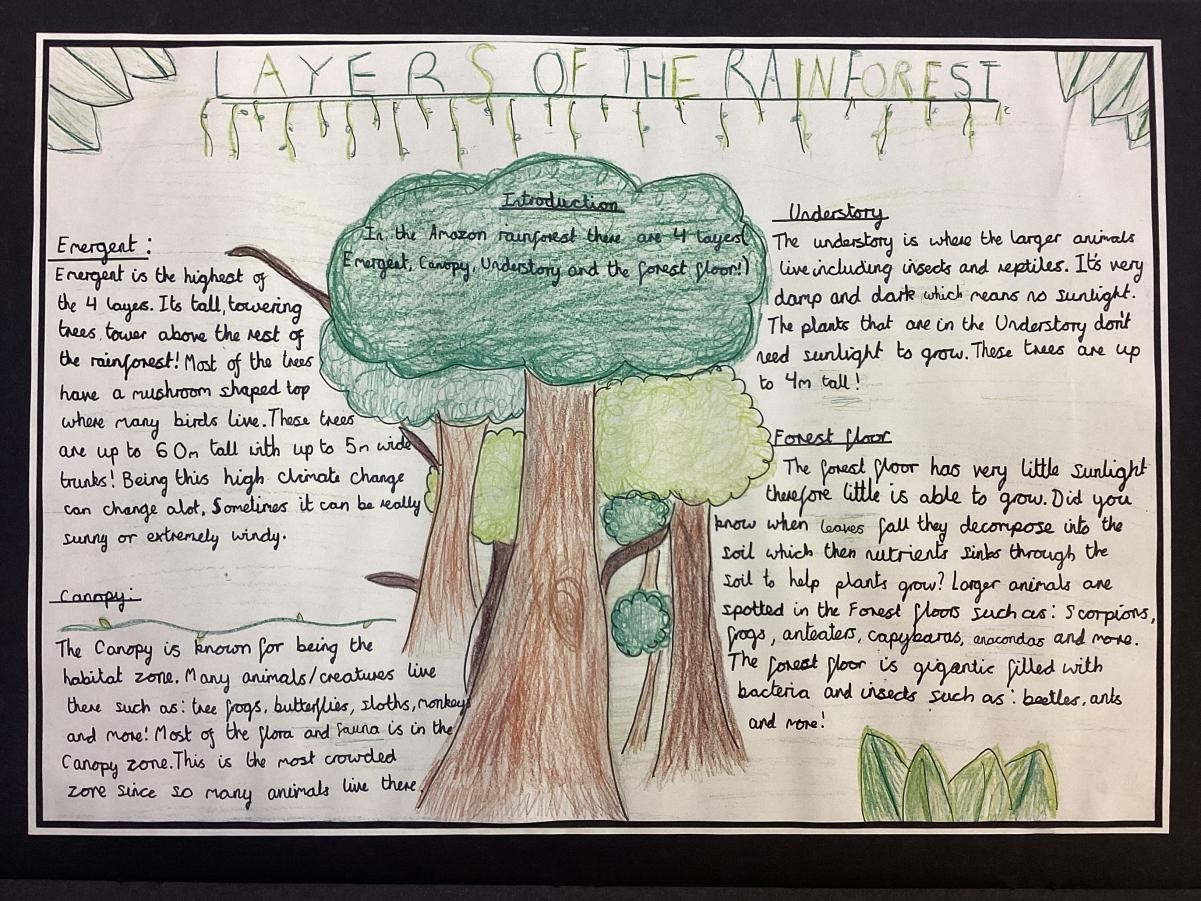 LAYERS OF THE RAINFOREST
Introduction
In the Amazon rainforest there are 4 layers(
Emergent, Canopy, Understory and the forest floor!)
Emergent :
Emergent is the highest of
the 4 layers. Its tall, towering
trees, tower above the rest of
the rainforest! Most of the trees
have a mushroom shaped top
where many birds live. These trees
are up to 60m tall with up to 5m wide
trunks! Being this high climate change
can change alot, Sometimes it can be really
sunny or extremely windy.
Canopy:
The Canopy is known for being the
habitat zone. Many animals/creatures live
there such as: tree frogs, butterflies, sloths, monkeys
and more! Most of the flora and fauna is in the
Canopy zone. This is the most crowded
zone since so many animals live there.
Understory
The understory is where the larger animals
live including insects and reptiles. It's very
damp and dark which means no sunlight.
The plants that are in the Understory don't
need sunlight to grow. These trees are up
to 4m tall!
Forest floor
The forest floor has very little sunlight
therefore little is able to grow. Did you
know when leaves fall they decompose into the
soil which then nutrients sinks through the
soil to help plants grow? Larger animals are
spotted in the Forest floors such as: Scorpions,
frogs, anteaters, capybaras, anacondas and more.
The forest floor is gigantic filled with
bacteria and insects such as: beetles, ants
and more!